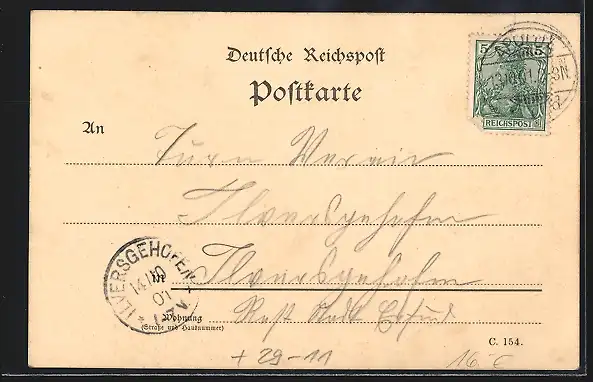 Deutsche Reichspost
Postkarte
5 5
REICHSPOST
An
Turn Verein
Ilversgehofen
ILVERSGEHOFEN
14.10
01
in Ilversgehofen
Wohnung
(Straße und Hausnummer)
Post Stadt Erfurt
C. 154.
+ 29-11
16.